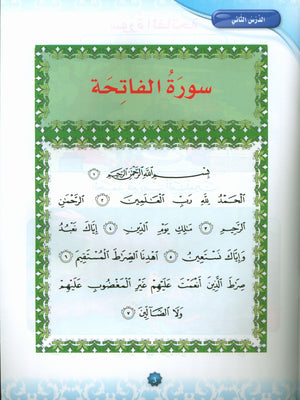 الدرس الثاني
سورة الفاتحة
بِسْمِ اللَّهِ الرَّحْمَٰنِ الرَّحِيمِ ١
الْحَمْدُ لِلَّهِ رَبِّ الْعَالَمِينَ ٢ الرَّحْمَٰنِ
الرَّحِيمِ ٣ مَالِكِ يَوْمِ الدِّينِ ٤ إِيَّاكَ نَعْبُدُ
وَإِيَّاكَ نَسْتَعِينُ ٥ اهْدِنَا الصِّرَاطَ الْمُسْتَقِيمَ ٦
صِرَاطَ الَّذِينَ أَنْعَمْتَ عَلَيْهِمْ غَيْرِ الْمَغْضُوبِ عَلَيْهِمْ
وَلَا الضَّالِّينَ ٧